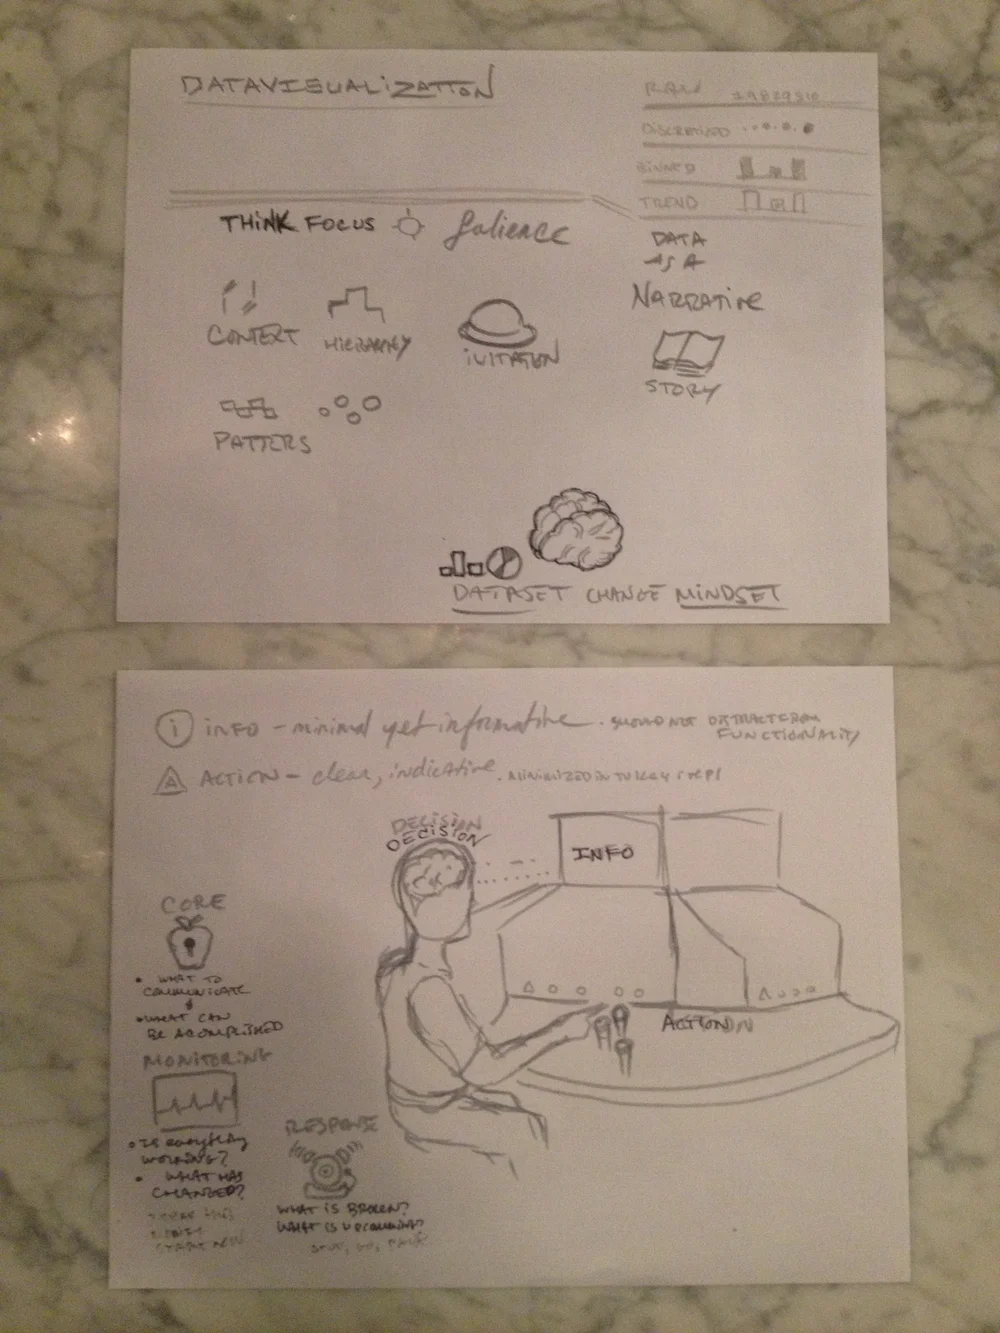 DATAVISUALIZATION
RAW
DISCRETIZED
BINNED
TREND
THINK FOCUS Salience
DATA
AS A
NARRATIVE
CONTEXT
HIERARHY
STORY
PATTERS
DATASET CHANGE MINDSET
i INFO - minimal yet informative. SHOULD NOT DISTRACT FROM
FUNCTIONALITY
A ACTION - clear, indicative. MINIMIZED IN
DECISION
DECISION
INFO
CORE
• WHAT TO
COMMUNICATE
&
• WHAT CAN
BE ACOMPLISHED
ACTION
MONITORING
• Is everything
WORKING?
• WHAT HAS
CHANGED?
START NEW
RESPONSE
WHAT IS BROKEN?
WHAT IS UPCOMMING?